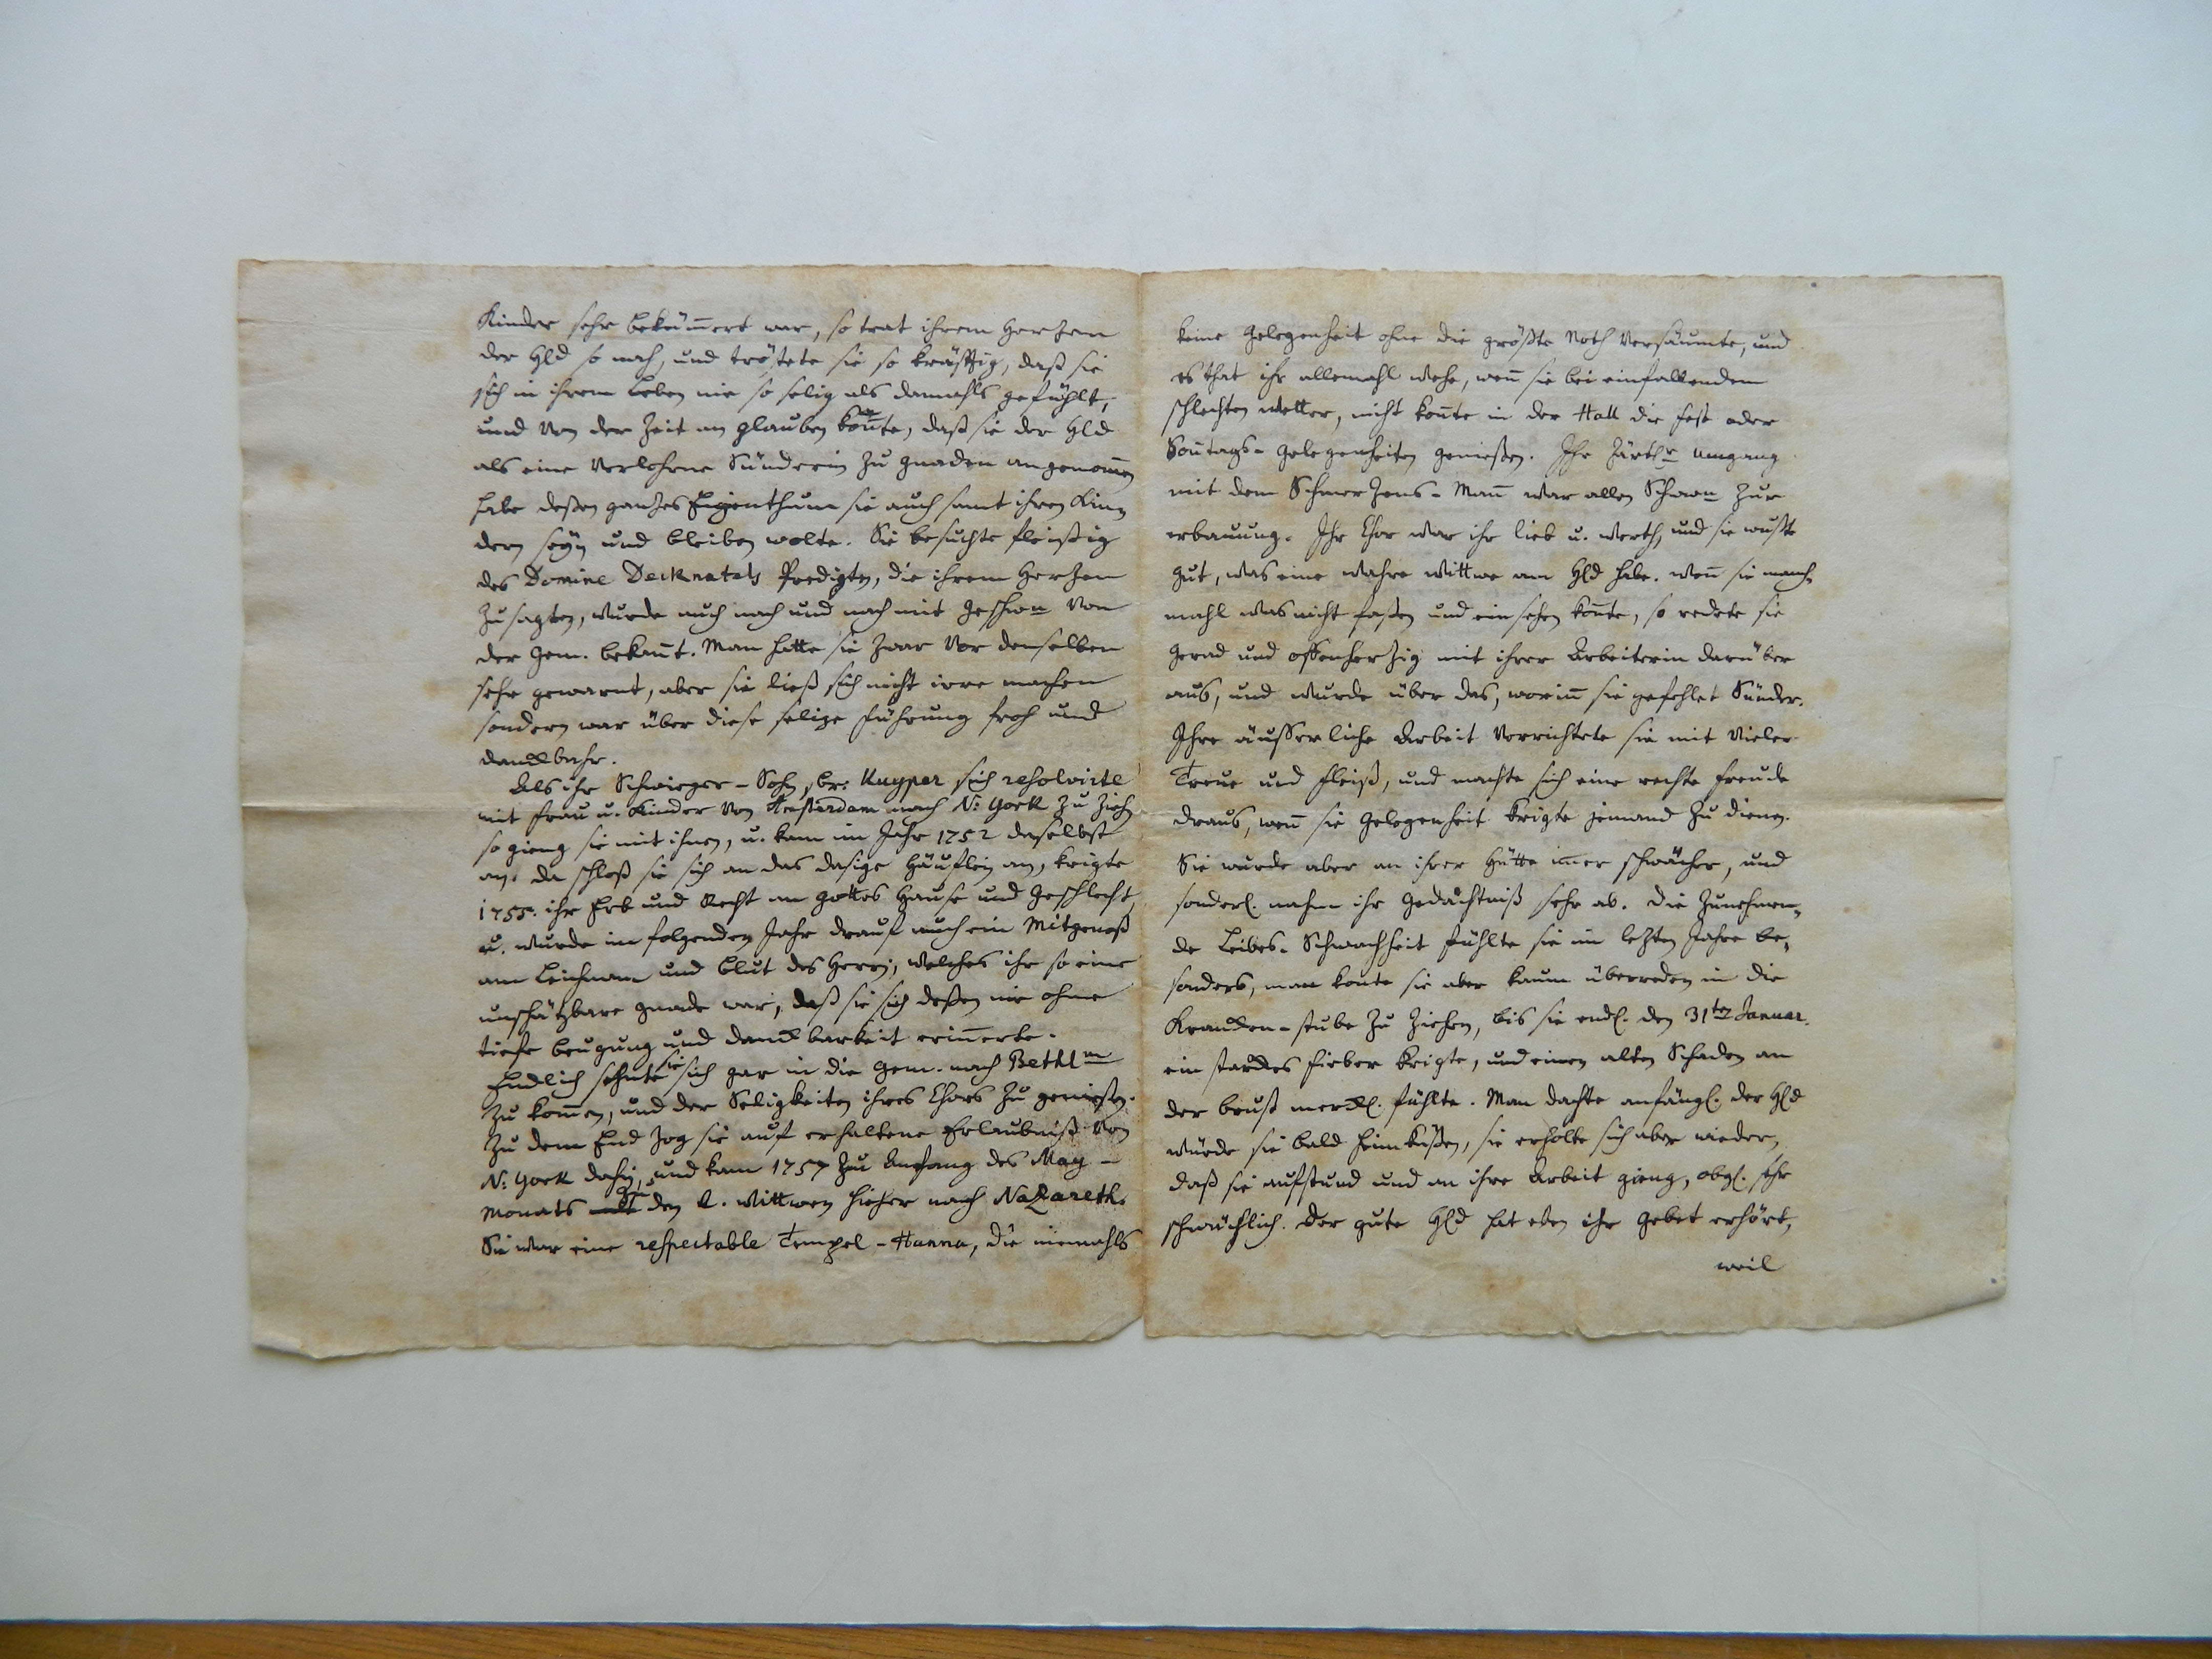 Kinder sehr bekümmert war, so trat ihrem Herzen
der Hld so nah, und tröstete sie so kräfftig, daß sie
sich in ihrem Leben nie so selig als damahls gefühlt,
und von der Zeit an glauben kon̄te, daß sie der Hld
als eine verlohrne Sünderin zu Gnaden angenom̄en
habe deßen ganzes Eigenthum sie auch samt ihren Kin-
dern seÿn und bleiben wolte. Sie besuchte fleissig
des Domine Decknatels Predigten, die ihrem Herzen
zusagten, wurde auch nach und nach mit Geschwn von
der Gem. bekan̄t. Man hatte sie zwar vor denselben
sehr gewarnt, aber sie ließ sich nicht irre machen
sondern war über diese selige Führung froh und
danckbahr.
Als ihr Schwieger-Sohn, br: Kuyper sich resolvirte
mit Frau u. Kinder von Amsterdam nach N: York zu ziehn
so gieng sie mit ihnen, u. kam im Jahr 1752 daselbst
an. Da schloß sie sich an das dasige Häuflein an, krigte
1755. ihr Erb und Recht an Gottes Hause und Geschlecht,
u. wurde im folgenden Jahr drauf auch ein Mitgenoß
am Leichnam und Blut des Herrn, welches ihr so eine
unschätzbare Gnade war, daß sie sich deßen nie ohne
tiefe Beugung und Danckbarkeit erin̄erte.
Endlich sehnte sie sich gar in die Gem. nach Bethlm
zu kom̄en, und der Seligkeiten ihres Chors zu genießen.
Zu dem End zog sie auf erhaltene Erlaubniß von
N: York dahin, und kam 1757 zu Anfang des May-
Monats mit den l. Wittwen hieher nach Nazareth.
Sie war eine respectable Tempel-Hanna, die niemahls
keine Gelegenheit ohne die größte Noth versäumte, und
es that ihr allemahl wehe, wen̄ sie bei einfallendem
schlechten Wetter, nicht kon̄te in der Hall die Fest oder
Son̄tags-Gelegenheiten genießen. Ihr zärtlr Umgang
mit dem Schmerzens-Man̄ war allen Schwn zur
Erbauung. Ihr Chor war ihr lieb u. werth, und sie wußte
gut, was eine wahre Wittwe am Hld habe. Wen̄ sie manch-
mahl was nicht faßen und einsehen kon̄te, so redete sie
gerad und offenherzig mit ihrer Arbeiterin darüber
aus, und wurde über das, worin̄ sie gefehlet Sünder.
Ihre äusserliche Arbeit verrichtete sie mit vieler
Treue und Fleiß, und machte sich eine rechte Freude
draus, wen̄ sie Gelegenheit krigte jemand zu dienen.
Sie wurde aber an ihrer Hütte im̄er schwächer, und
sonderl. nahm ihr Gedächtniß sehr ab. Die zunehmen-
de Leibes-Schwachheit fühlte sie im lezten Jahre be-
sonders, man konte sie aber kaum überreden in die
Krancken-stube zu ziehen, bis sie endl. den 31ten Januar.
ein starckes Fieber krigte, und einen alten Schaden an
der Brust merckl. fühlte. Man dachte anfängl. der Hld
würde sie bald heimküßen, sie erholte sich aber wieder,
daß sie aufstund und an ihre Arbeit gieng, obgl. sehr
schwächlich. Der gute Hld hat eben ihr Gebet erhört,
weil